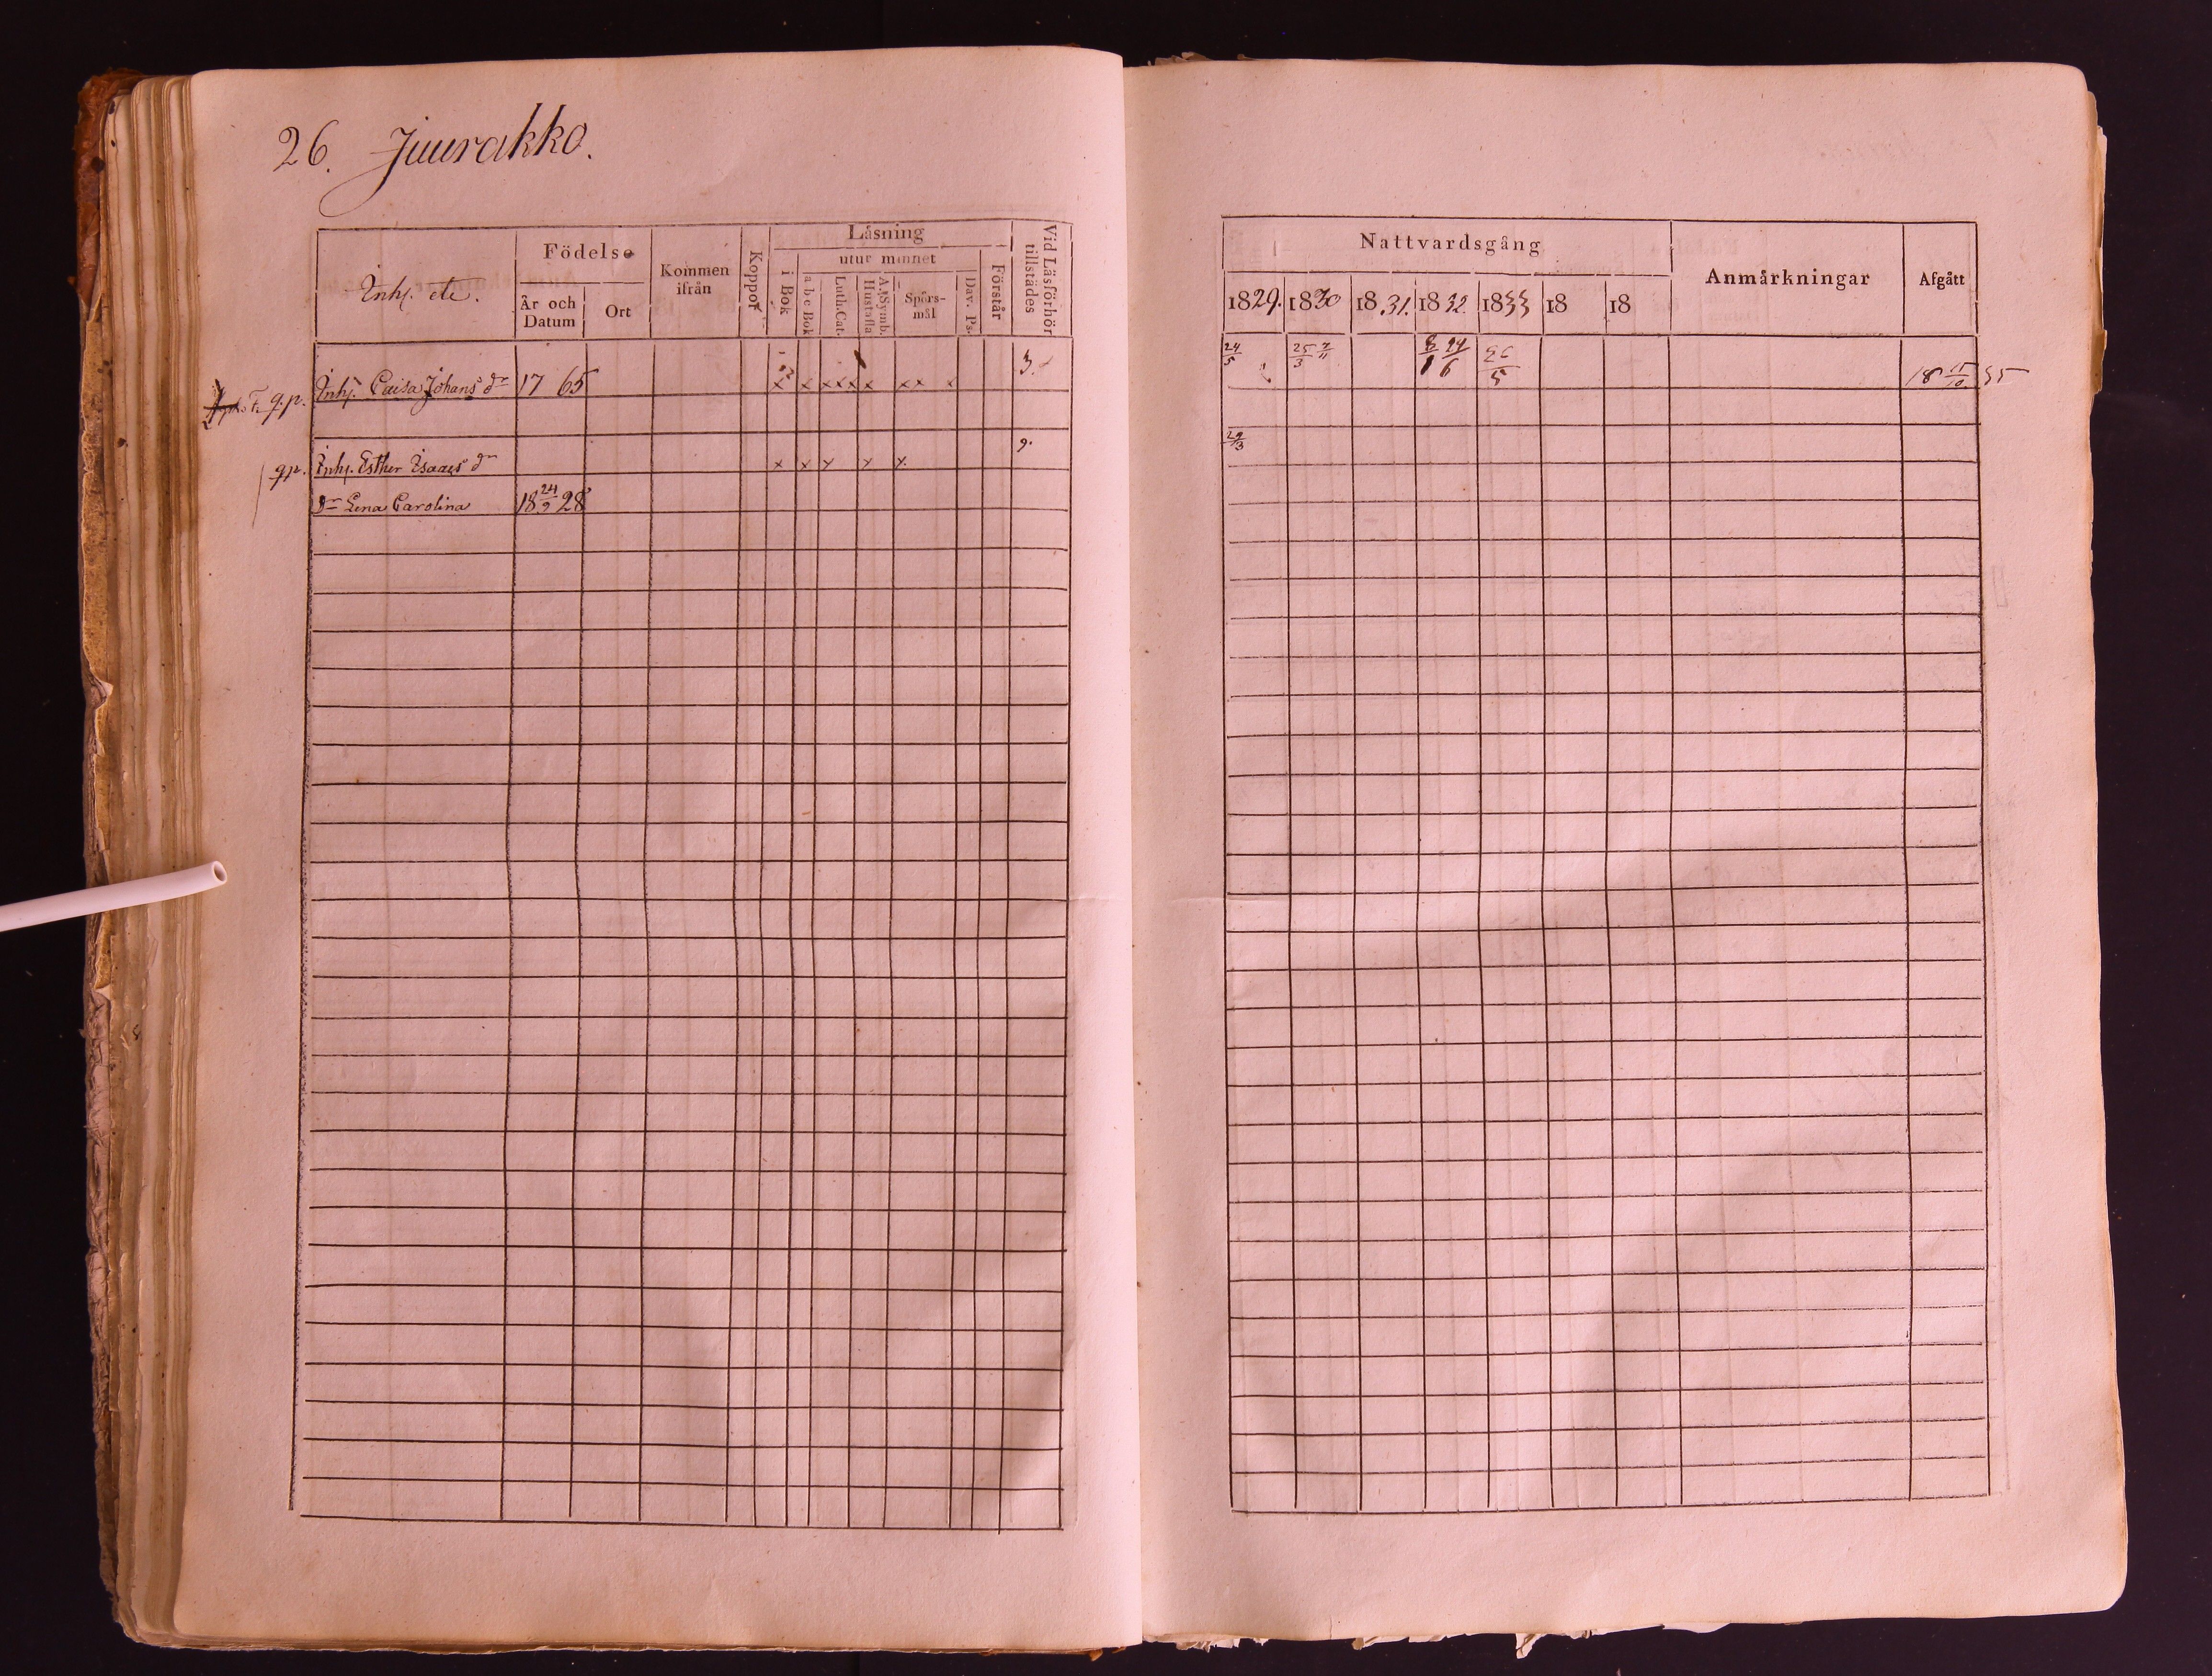 26. Juurakko.
Inhs. etc.
Födelse
År och Datum
Ort
Kommen ifrån
Koppor
Läsning
utur minnet
i Bok
a b c Bok
Luth. Cat.
A. Symb. Hustafla
Spörs-mål
Dav. Ps.
Förstår
Vid Läsförhör tillstädes
q.p. Inhs. Caisa Johans dr 17 65 x x x x x x x x x 3.
q.p. Inhs. Esther Isaacs dr x x x x x 9.
dr Lena Carolina 18 24/9 28
Nattvardsgång
1829. 1830 1831. 1832. 1833 18 18
Anmärkningar
Afgått
24/5 25/3 7/11 8/1 24/6 26/5 18 15/10 35
29/3